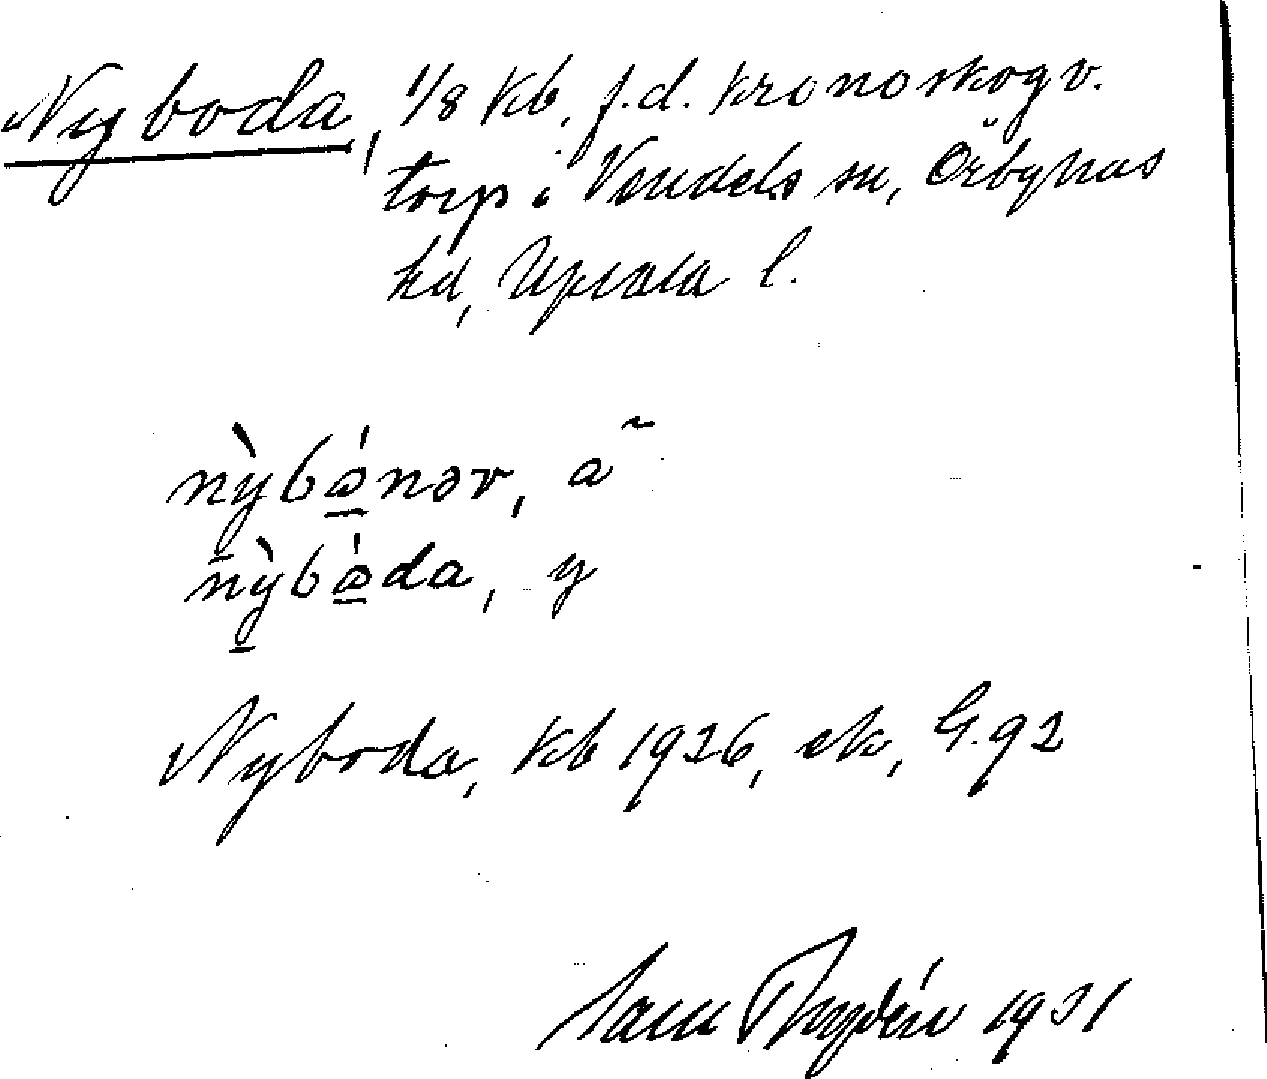 Nyboda, 1/8 kb, f.d. kronoskogv.
torp i Vendels sn, Örbyhus
hd, Upsala l.
nỳbǿnər, ã
nỳbǿda, y
Nyboda, kb 1926, ek, G. 92
Sam Thydén 1931